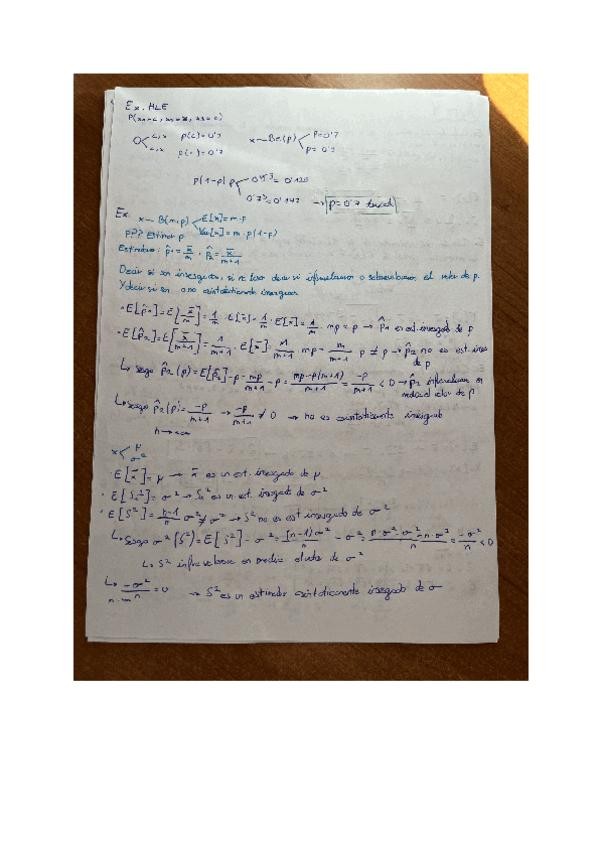 Ex. MLE
P(x1=c, x2=x, x3=c)
C,x P(c)=0'3 x~Be(p) p=0'7
c,x P(·)=0'7 p=0'3
P(1-p)p 0'7·3²=
0'7²·3=0'147 → p=0'7
Ex. x ~ B(m,p) E[x]=m·p
p??? Estimar p Var[x]=m·p(1-p)
Estimadores: p̂1 = x̄/m , p̂2 = x̄/(m+1)
Decir si son insesgados, si no lo son decir si infravaloran o sobrevaloran el valor de p.
Y decir si son o no asintóticamente insesgados
·E[p̂1]=E[x̄/m]=1/m·E[x̄]=1/m·E[x]=1/m·mp=p → p̂1 es est. insesgado de p
·E[p̂2]=E[x̄/(m+1)]=1/(m+1)·E[x̄]=1/(m+1)·mp=m/(m+1) p≠p → p̂2 no es est. inses
de p
↳ sesgo p̂2(p)=E[p̂2]-p=mp/(m+1)-p=(mp-p(m+1))/(m+1)=-p/(m+1)<0 → p̂2 infravalora en
media el valor de p
↳ sesgo p̂2(p)=-p/(m+1) → -p/(m+1)≠0 → no es asintóticamente insesgado
n→∞
x μ
σ²
E[x̄]=μ → x̄ es un est. insesgado de μ
· E[Sc²]=σ² → Sc² es un est. insesgado de σ²
· E[S²]=(n-1)/n σ²≠σ² → S² no es est insesgado de σ²
↳ Sesgo σ²(S²)=E[S²]-σ²=(n-1)σ²/n-σ²=(n·σ²-σ²-n·σ²)/n=-σ²/n<0
↳ S² infravalora en media el valor de σ²
↳ -σ²/n=0 → S² es un estimador asintóticamente insesgado de σ